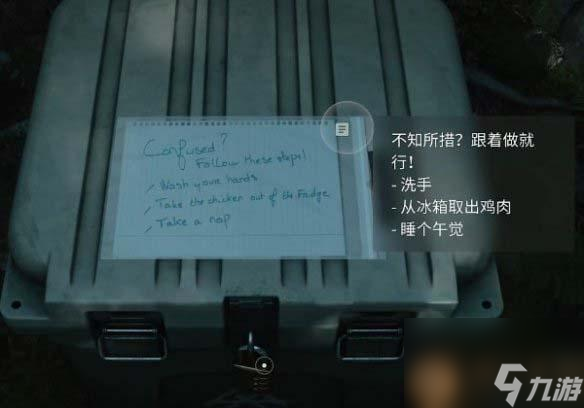 Confused?
Follow these steps!
- Wash your hands
- Take the chicken out of the Fridge
- Take a nap
不知所措？跟着做就
行！
- 洗手
- 从冰箱取出鸡肉
- 睡个午觉
九游